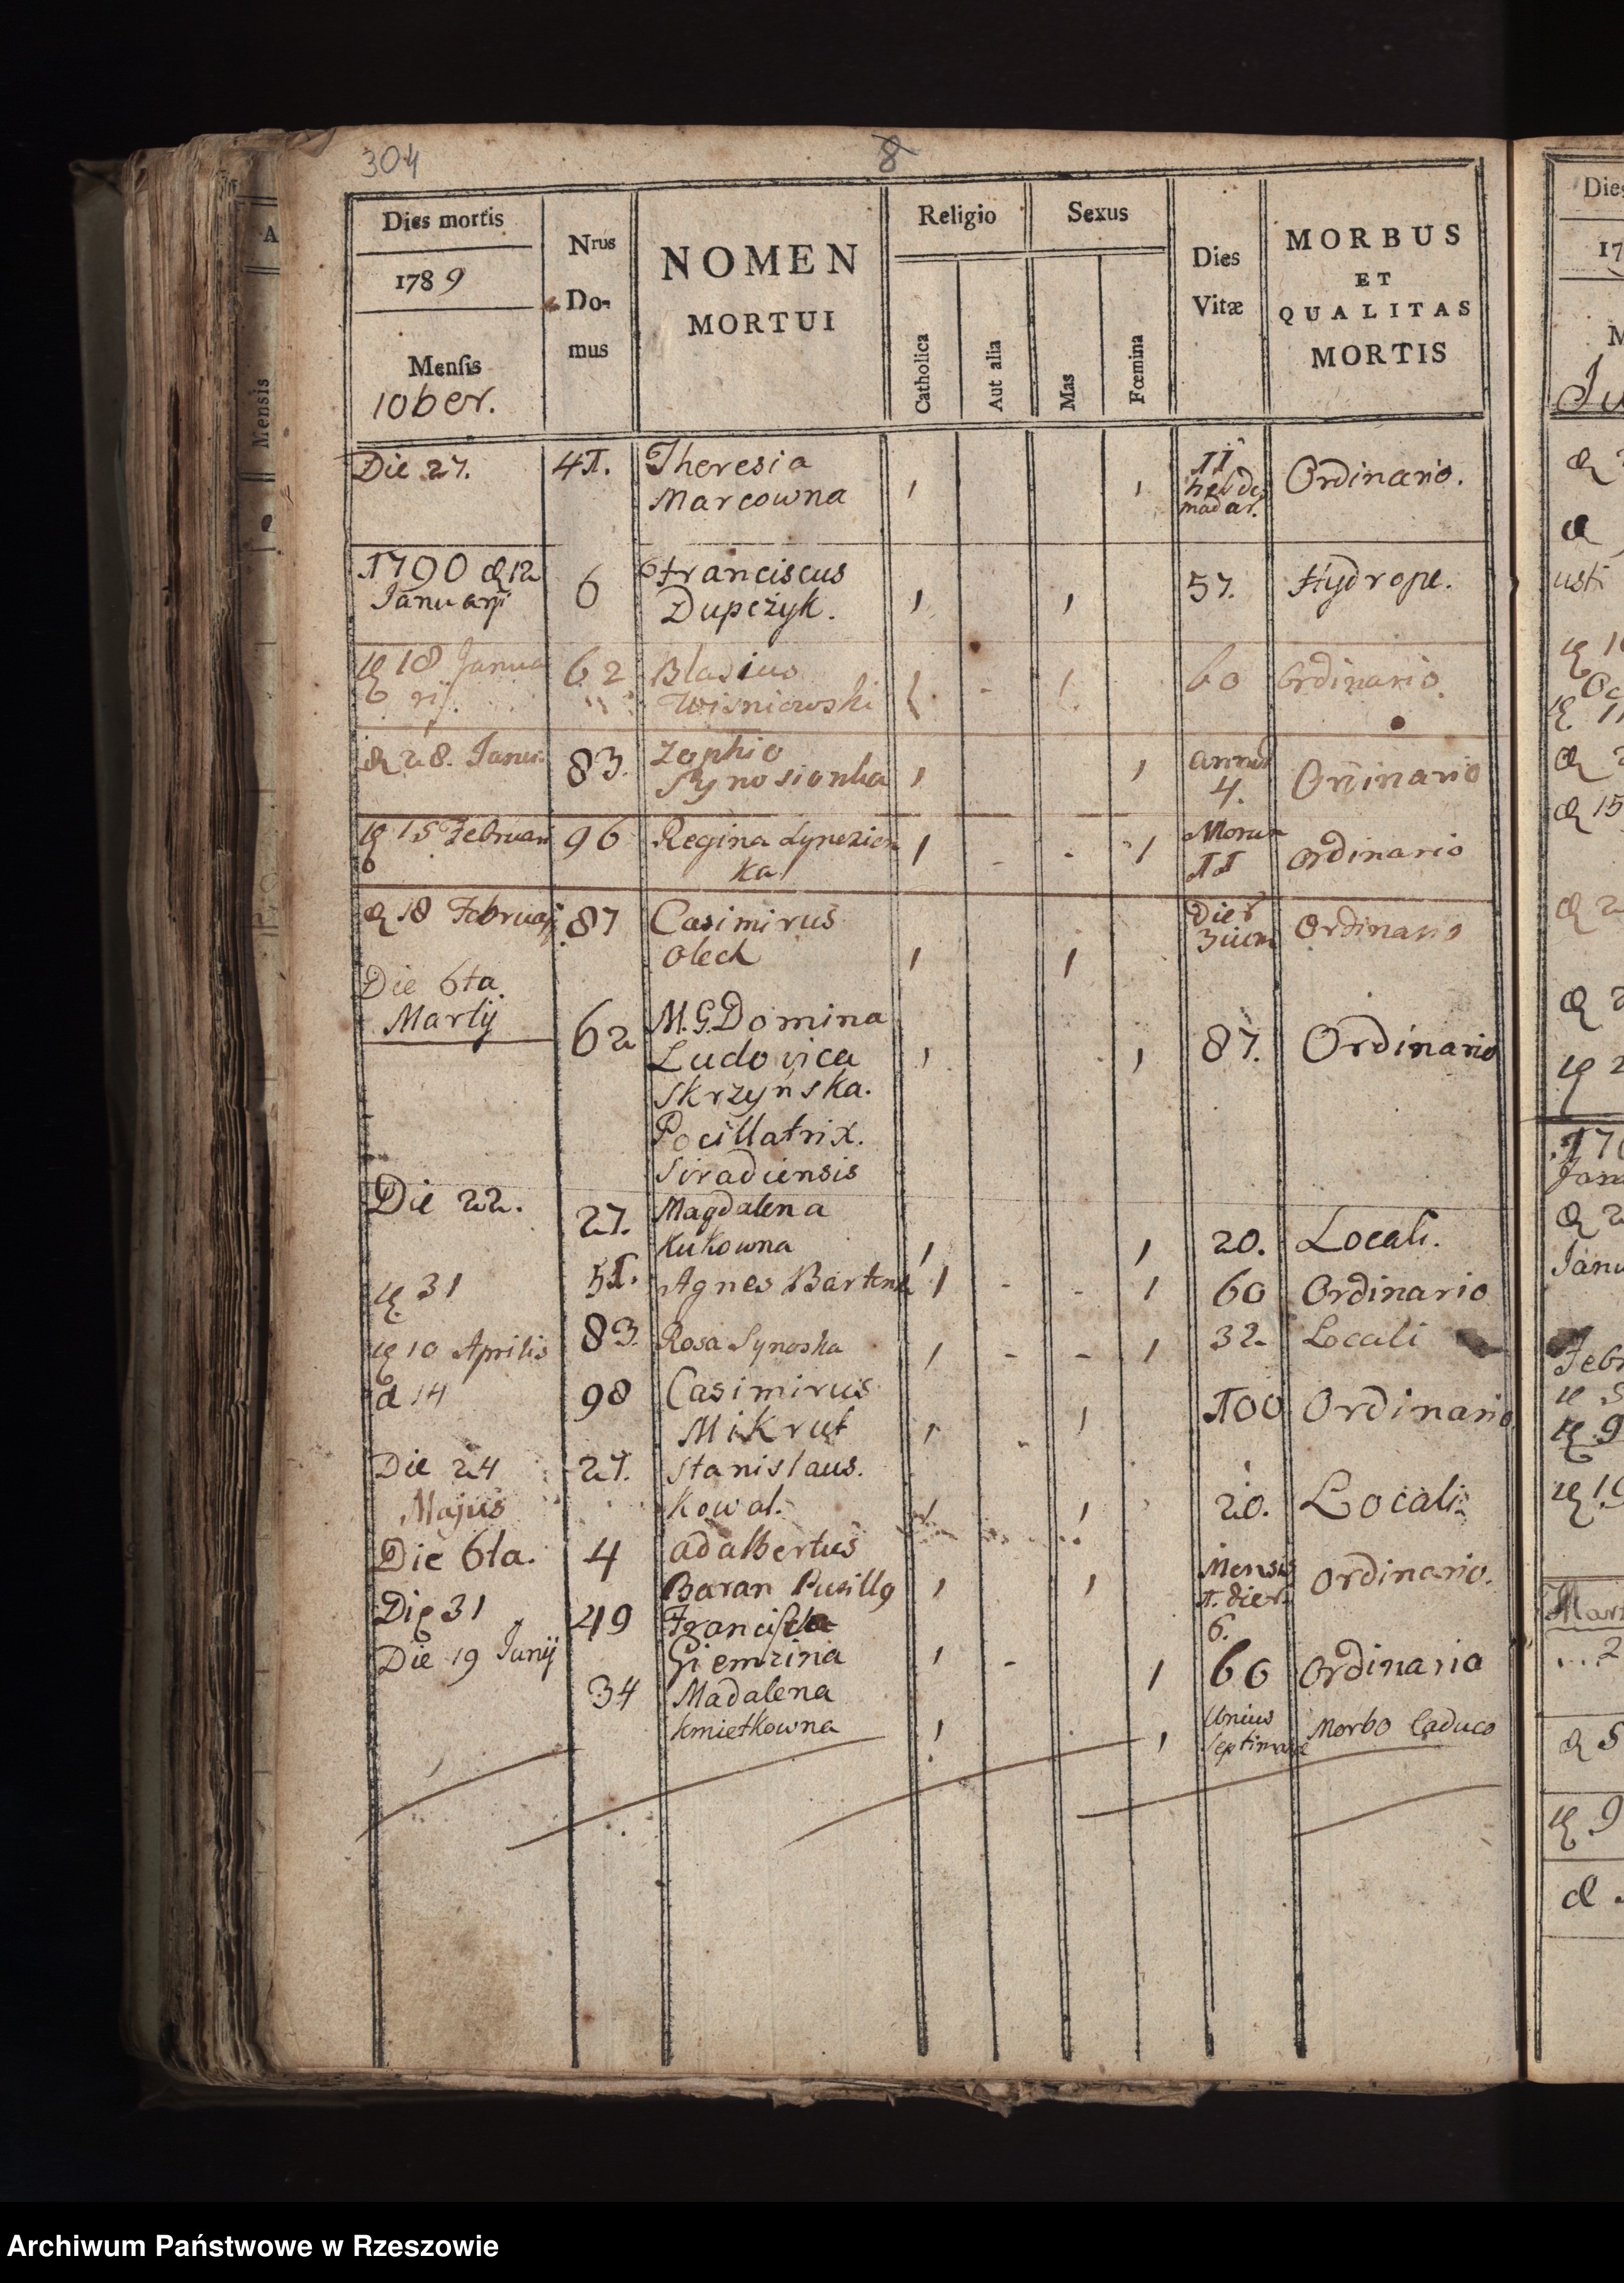 304
8
Dies mortis
1789
Mensis
10ber.
Nrus
Do-
mus
NOMEN
MORTUI
Religio
Catholica
Aut alia
Sexus
Mas
Fœmina
Dies
Vitæ
MORBUS
ET
QUALITAS
MORTIS
Die 27. 41. Theresia
Marcowna
11
hebdo
madar.
Ordinario.
1790 d 12
Januarij
6
Franciscus
Dupczyk.
57. Hydrope.
18 Janua
rij.
62 Blasius
Wisniowski
60 Ordinario.
d 28. Janu. 83. Zophio
Synosionka
annor
4.
Orinario
15 Februari 96 Regina Lynezien
ka
11
Ordinario
d 18 Februarij 87 Casimirus
Olech
Die
Ordinario
Die 6ta
Martij
62 M.G.Domina
Ludovica
Skrzyńska.
Pocillatrix.
Siradiensis
87. Ordinario
Die 22. 27. Magdalena
Kukowna
20. Locali.
31 51. Agnes 60 Ordinario
10 Aprilis 83. Rosa Synoska 32 Locali
d 14 98 Casimirus
Mikrut
100 Ordinario
Die 24 27. Stanislaus.
Kowal.
20. Locali
Majus
Die 6ta. 4 Adalbertus
Baran
Mensis
1. dier.
6.
Ordinario.
Die 31 49
Giemzina
60 Ordinario
Die 19 Junij 34 Madalena
Kmietkowna
Unius
Septimanæ
Morbo Caduco
Archiwum Państwowe w Rzeszowie